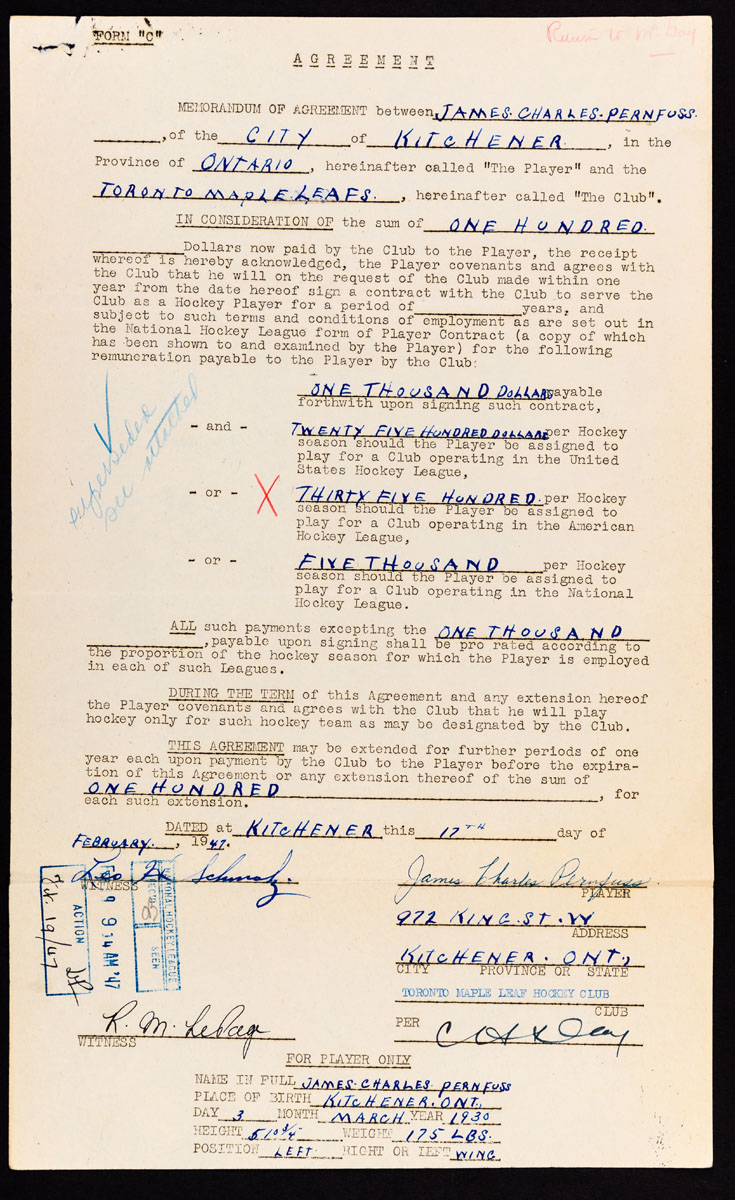 FORM "C"
Return to Mr Day
AGREEMENT
MEMORANDUM OF AGREEMENT between JAMES. CHARLES. PERNFUSS.
, of the CITY of KITCHENER. , in the
Province of ONTARIO , hereinafter called "The Player" and the
TORONTO MAPLE. LEAFS. , hereinafter called "The Club".
IN CONSIDERATION OF the sum of ONE HUNDRED.
Dollars now paid by the Club to the Player, the receipt
whereof is hereby acknowledged, the Player covenants and agrees with
the Club that he will on the request of the Club made within one
year from the date hereof sign a contract with the Club to serve the
Club as a Hockey Player for a period of years, and
subject to such terms and conditions of employment as are set out in
the National Hockey League form of Player Contract (a copy of which
has been shown to and examined by the Player) for the following
remuneration payable to the Player by the Club:
ONE THOUSAND DOLLARS payable
forthwith upon signing such contract,
- and - TWENTY FIVE HUNDRED DOLLARS per Hockey
season should the Player be assigned to
play for a Club operating in the United
States Hockey League,
superseded
see attached
- or - X THIRTY FIVE HUNDRED. per Hockey
season should the Player be assigned to
play for a Club operating in the American
Hockey League,
- or - FIVE THOUSAND per Hockey
season should the Player be assigned to
play for a Club operating in the National
Hockey League.
ALL such payments excepting the ONE THOUSAND
, payable upon signing shall be pro rated according to
the proportion of the hockey season for which the Player is employed
in each of such Leagues.
DURING THE TERM of this Agreement and any extension hereof
the Player covenants and agrees with the Club that he will play
hockey only for such hockey team as may be designated by the Club.
THIS AGREEMENT may be extended for further periods of one
year each upon payment by the Club to the Player before the expira-
tion of this Agreement or any extension thereof of the sum of
ONE HUNDRED , for
each such extension.
DATED at KITCHENER this 17TH day of
FEBRUARY. , 1947.
Leo Schmalz. James Charles Pernfuss
WITNESS PLAYER
972 KING. ST. W
ADDRESS
KITCHENER. ONT.,
CITY PROVINCE OR STATE
TORONTO MAPLE LEAF HOCKEY CLUB
CLUB
ACTION
Feb. 19/47
9 9 34 AM '47
NATIONAL HOCKEY LEAGUE
SEEN
R. M. LePage PER C H Day
WITNESS
FOR PLAYER ONLY
NAME IN FULL JAMES. CHARLES. PERNFUSS
PLACE OF BIRTH KITCHENER. ONT.,
DAY 3 MONTH MARCH YEAR 1930
HEIGHT 5 10 3/4 WEIGHT 175 LBS.
POSITION LEFT. RIGHT OR LEFT WING